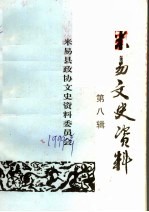 米易文史资料
第八辑
米易县政协文史资料委员会